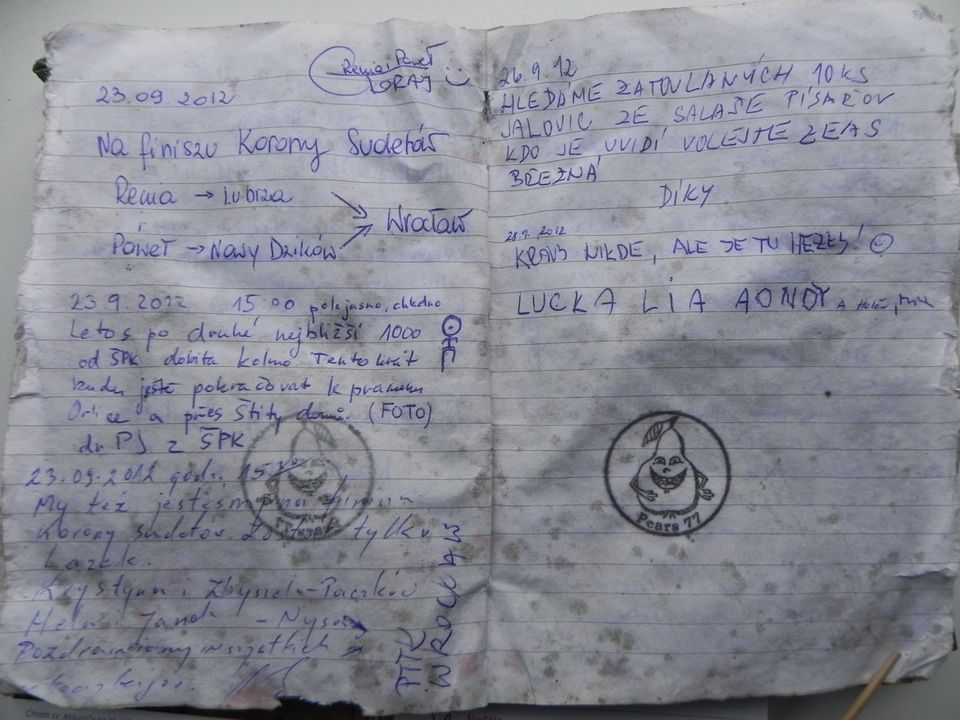 Renia i Paweł
GORAJ
23.09.2012
Na finiszu Korony Sudetów
Renia → Lubrza
Wrocław
Paweł → Nowy Dzików
23 9. 2012 15:00 polojasno, chladno
Letos po druhé nejbližší 1000
od ŠPK dobita kolmo Tentokrát
budu ještě pokračovat k prameni
Orlice a přes Štíty domů. (FOTO)
dr PJ z ŠPK
23.09.2012 godz. 15
My też jesteśmy na finiszu
Korony Sudetów. Został tylko
Lazek.
Krystyna i Zbyszek - Paczków
Janek - Nysa
Pozdrawiamy wszystkich
PTTK
WROCŁAW
26.9.12
HLEDÁME ZATOULANÝCH 10 KS
JALOVIC ZE SALAŠE PÍSAŘOV
KDO JE UVIDÍ VOLEJTE ZEAS
BŘEZNÁ
DÍKY
28.9. 2012
KRÁVY NIKDE, ALE JE TU HEZKY!
LUCKA LÍA AONDY A
Pears 77